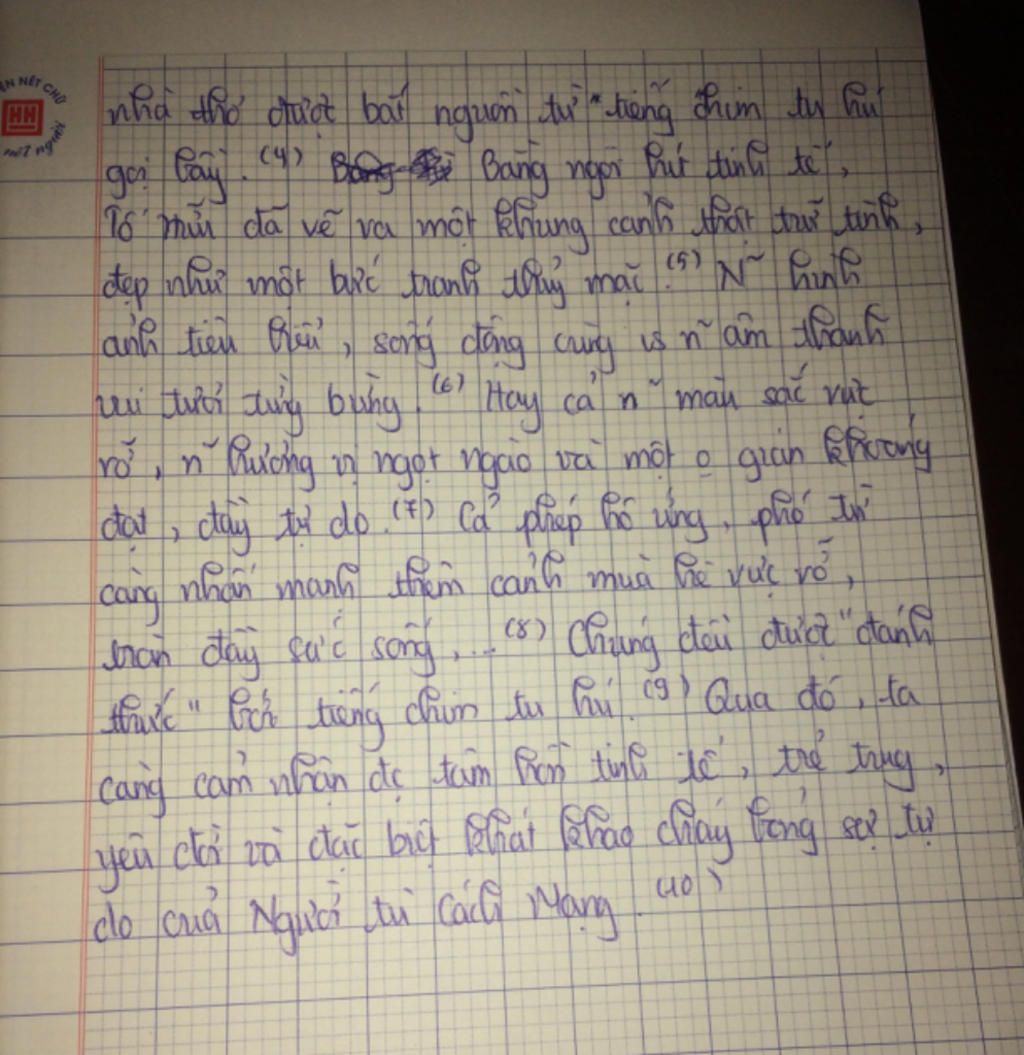 ỆN NÉT CHỮ
HH
nhà thơ được bắt nguồn từ "tiếng chim tu hú
gọi bầy. (4) Bằng ngòi bút tinh tế,
Tố Hữu đã vẽ ra một khung cảnh thật trữ tình,
đẹp như một bức tranh thủy mặc. (5) N~ hình
ảnh tiêu biểu, sống động cùng vs n~ âm thanh
vui tươi tưng bừng. (6) Hay cả n~ màu sắc rực
rỡ, n~ hương vị ngọt ngào và một o gian khoáng
đạt, đầy tự do. (7) Cả phép hô ứng, phó từ
càng nhấn mạnh thêm cảnh mùa hè rực rỡ,
tràn đầy sức sống,... (8) Chúng đều được "đánh
thức" bởi tiếng chim tu hú. (9) Qua đó, ta
càng cảm nhận đc tâm hồn tinh tế, trẻ trung,
yêu đời và đặc biệt khát khao cháy bỏng sự tự
do của Người tù Cách Mạng. (10)